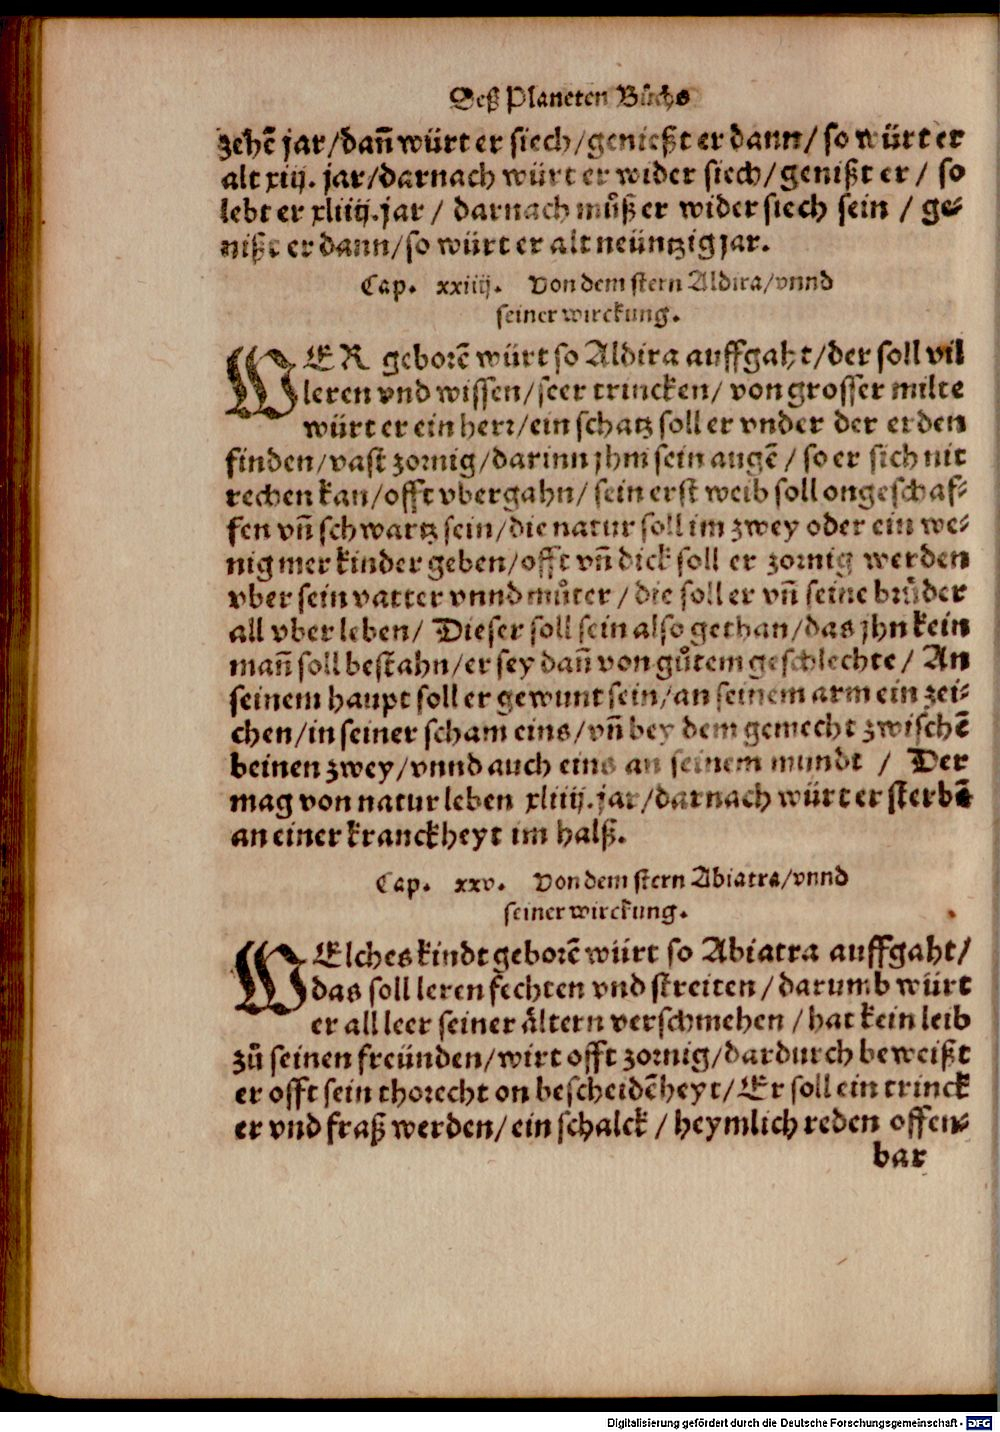 Deß Planeten Bůchs
zehē jar/dañ würt er siech/genießt er dann/ so würt er
alt xiij. jar/darnach würt er wider siech/genißt er / so
lebt er xliiij.jar / darnach můß er wider siech sein / ge-
nißt er dann/so würt er alt neüntzig jar.
Cap. xxiiij. Von dem stern Aldira/vnnd
seiner wirckung.
WER geborē würt so Aldira auffgaht/der soll vil
leren vnd wissen/seer trincken/ von grosser milte
würt er ein herr/ein schatz soll er vnder der erden
finden/vast zornig/darinn jhm sein augē / so er sich nit
rechen kan/offt vbergahn/ sein erst weib soll ongeschaf-
fen vñ schwartz sein/die natur soll im zwey oder ein we-
nig mer kinder geben/offt vñ dick soll er zornig werden
vber sein vatter vnnd můter / die soll er vñ seine brůder
all vber leben/ Dieser soll sein also gethan/das jhn kein
mañ soll bestahn/er sey dañ von gůtem geschlechte/ An
seinem haupt soll er gewunt sein/an seinem arm ein zei-
chen/in seiner scham eins/vñ bey dem gemecht zwischē
beinen zwey/vnnd auch eins an seinem mundt / Der
mag von natur leben xliiij.jar/darnach würt er sterbē
an einer kranckheyt im halß.
Cap. xxv. Von dem stern Abiatra/vnnd
seiner wirckung.
WElches kindt geborē würt so Abiatra auffgaht/
das soll leren fechten vnd streiten/darumb würt
er all leer seiner ältern verschmehen/hat kein leib
zů seinen freünden/wirt offt zornig/dardurch beweißt
er offt sein thorecht on bescheidēheyt/Er soll ein trinck
er vnd fraß werden/ein schalck / heymlich reden offen-
bar
Digitalisierung gefördert durch die Deutsche Forschungsgemeinschaft - DFG